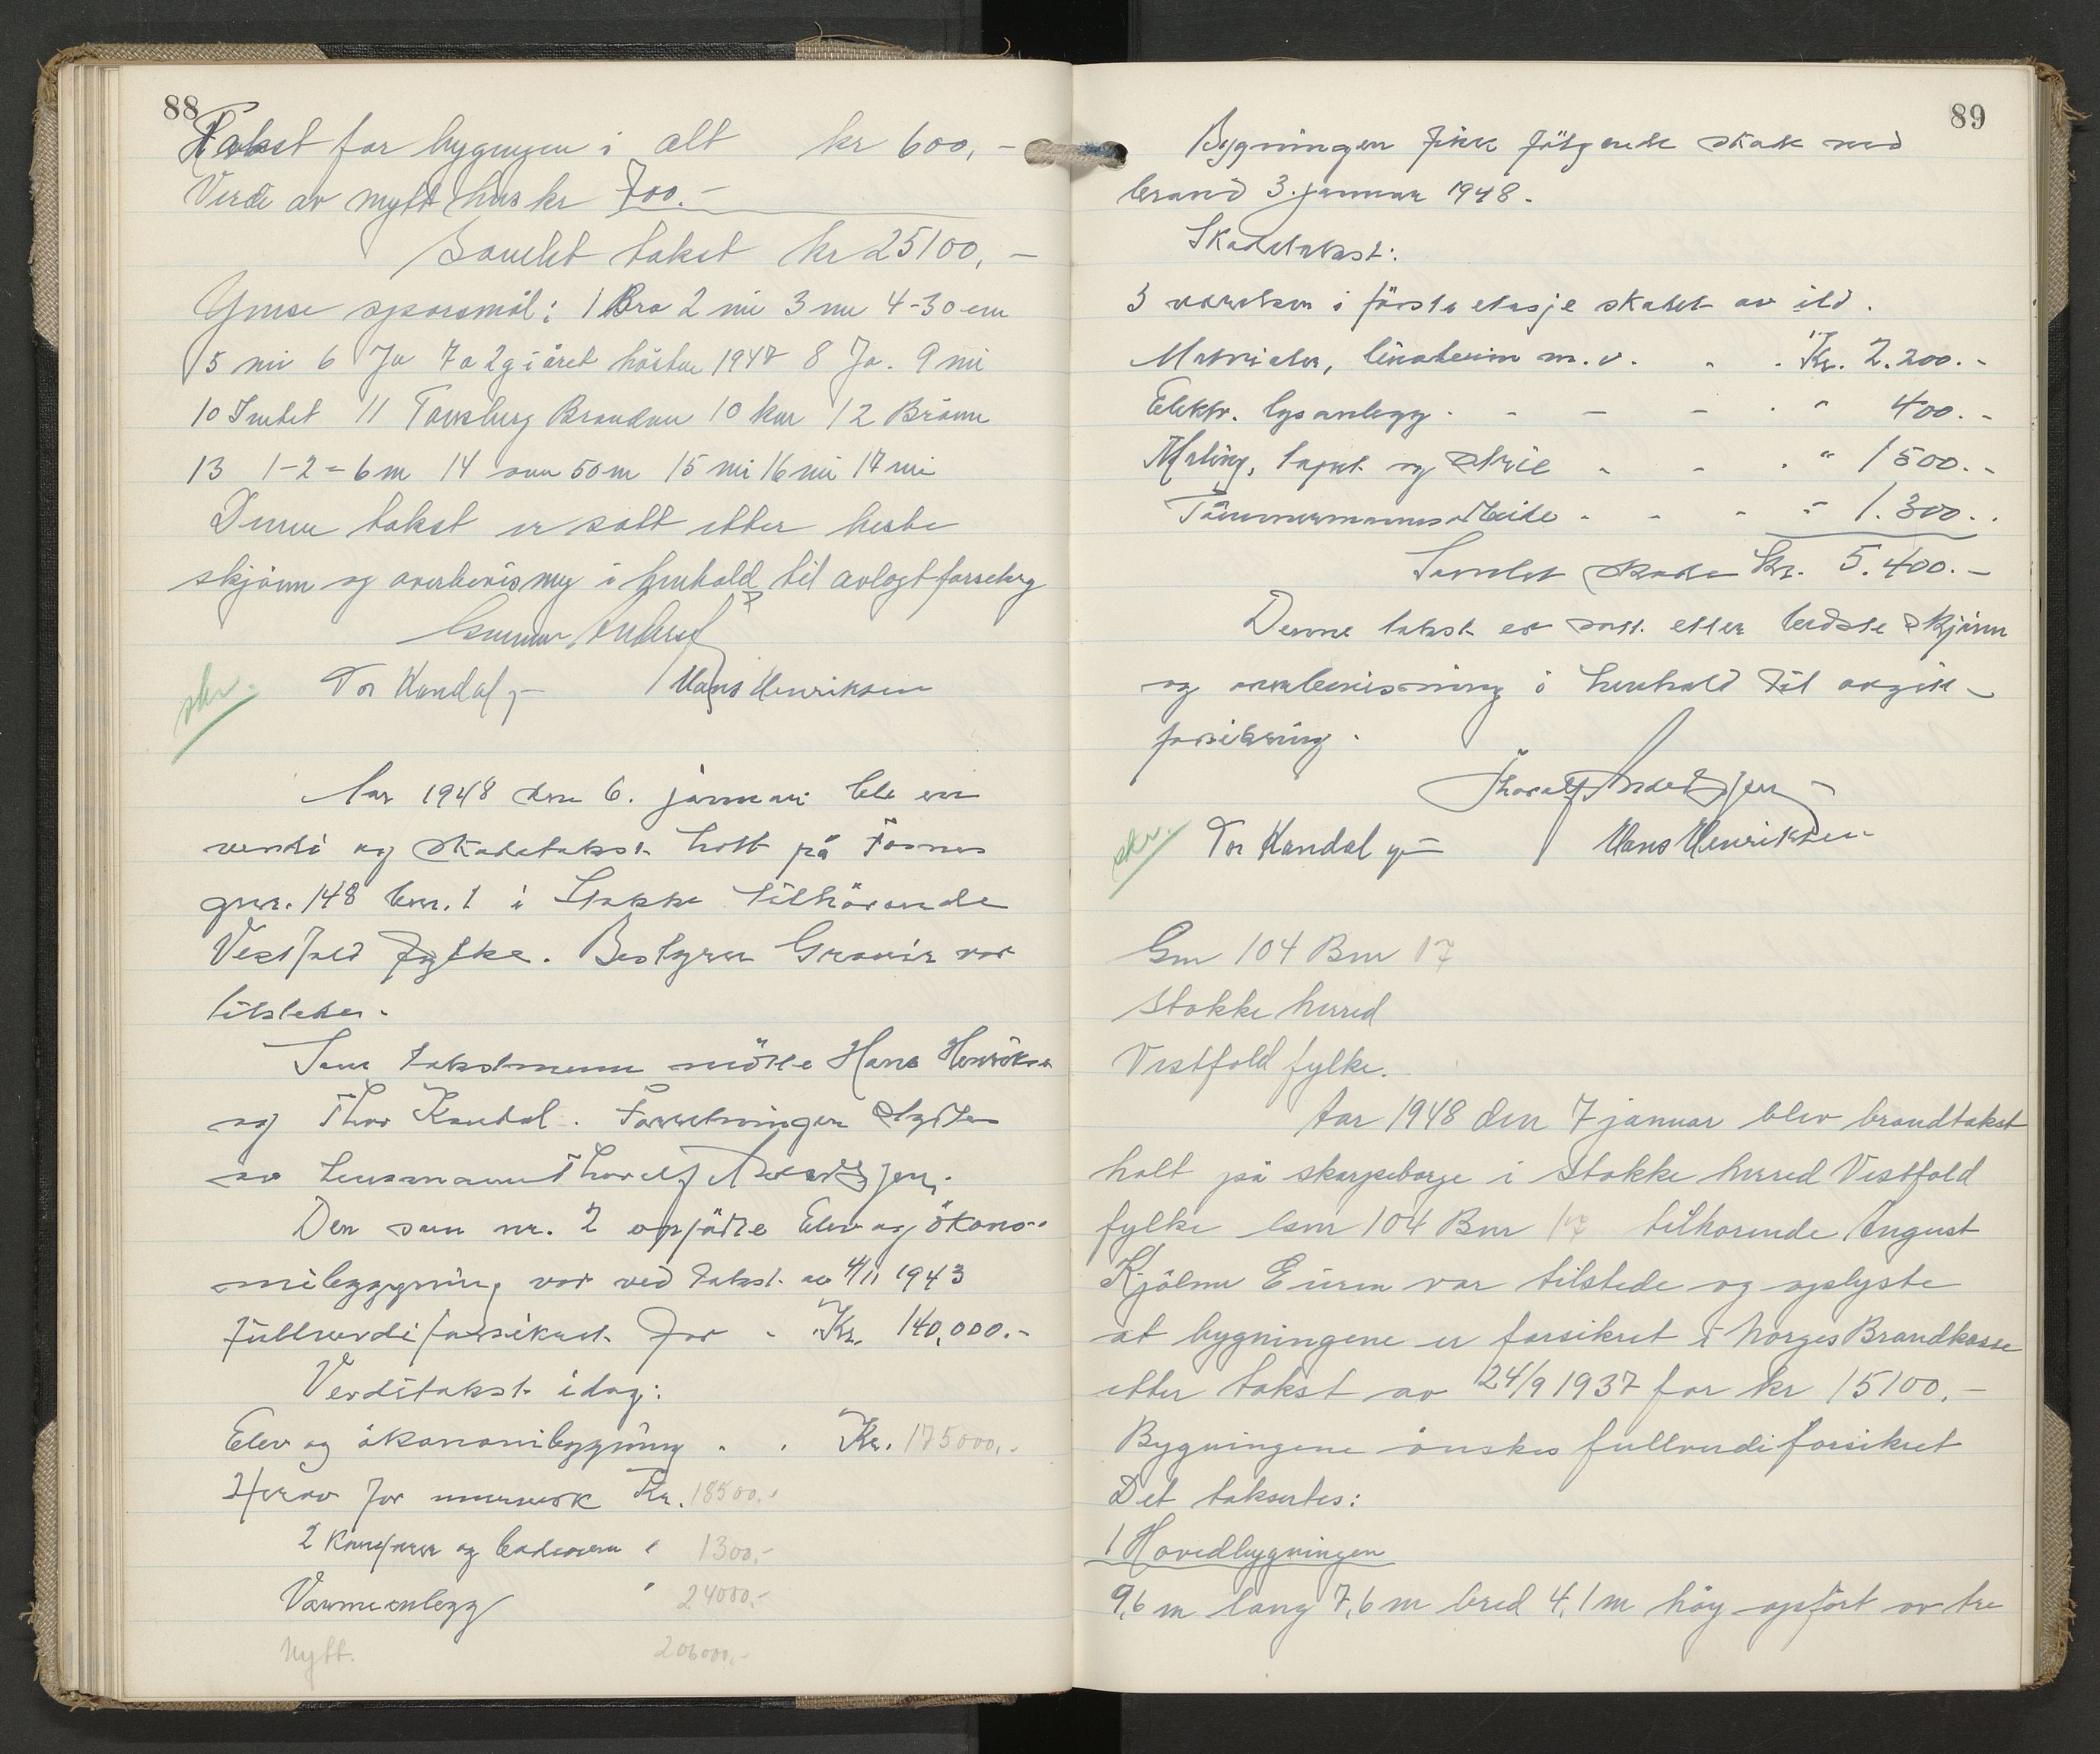 88
Takst for bygngen i alt kr 600,-
Verdi av nytt hus kr 700.-
Samlet takst kr 25100,-
Ymse sporsmål: 1 Bra 2 nei 3 nei 4-30 cm
5 nei 6 Ja 7 a 2 g i året hösten 1947 8 Ja. 9 nei
10 Intet 11 Tønsberg Brandven 10 km 12 Brönn
13 1-2 = 6 m 14 50 m 15 nei 16 nei 17 nei
Denne takst er satt etter beste
skjönn og overbevisning i henhold til avlagt forsikring
Tor Kandal Hans Henriksen
skr.
Aar 1948 den 6. januar ble en
verdi og skadetakst holt på Fosnes
gnr. 148 bnr. 1 i Stokke tilhörande
Vestfold fylke. Bestyrer Gravir var
tilstede.
Som takstmenn mötte Hans Henriksen
og Thor Kandal. Forretningen styrtes
av lensmann Thoralf
Den som nr. 2 opförte Elev og ökono-
mibyggning var ved takst av 4/11 1943
fullverdiforsikret for - Kr. 140,000.-
Verditakst idag:
Elev og ökonomibyggning . . Kr. 175000,-
Herav for murverk Kr. 18500,-
2 og badeovn " 1300,-
Varmeanlegg " 24000,-
Nytt. 206000,-
89
Bygningen fikk fölgende skade ved
brand 3. januar 1948.
Skadetakst:
3 værelser i första etasje skadet av ild.
Materialer, linoleum m. v. - . Kr. 2.200.-
Elektr. lysanlegg - - - - . " 400.-
Maling, tapet og strie - - . " 1500.-
Tömmermannsarbeide - - - " 1.300.-
Samlet skade Kr. 5.400.-
Denne takst er satt etter bedste skjönn
og overbevisning i henhold til avgitt
forsikring.
Tor Kandal Hans Henriksen
skr.
Gnr 104 Bnr 17
Stokke herred
Vestfold fylke.
Aar 1948 den 7 januar blev brandtakst
holt på skarpeborge i Stokke herred Vestfold
fylke Gnr 104 Bnr 17 tilhorende August
Kjölner Eieren var tilstede og oplyste
at bygningene er forsikret i Norges Brandkasse
etter takst av 24/9 1937 for kr 15100.-
Bygningene önskes fullverdiforsikret
Det takseres:
1 Hovedbygningen
9,6 m lang 7,6 m bred 4,1 m höy opfört av tre